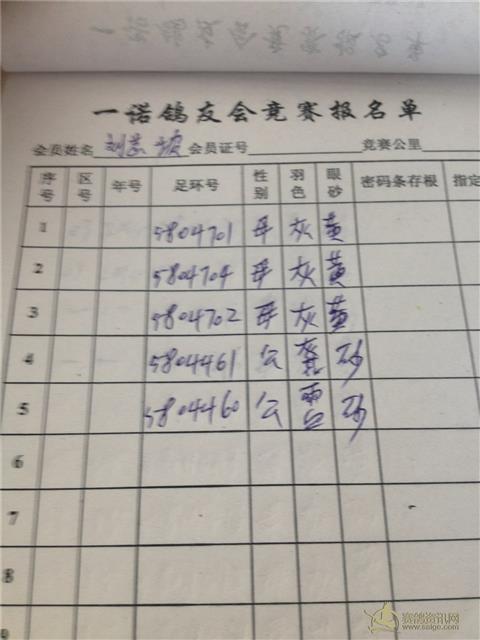 一诺鸽友会竞赛报名单
会员姓名 刘 会员证号 竞赛公里
序号 区号 年号 足环号 性别 羽色 眼砂 密码条存根 指定
1 5804701 母 灰 黄
2 5804704 母 灰 黄
3 5804702 母 灰 黄
4 5804461 公 灰花 砂
5 5804460 公 砂
6
7
8
9
赛鸽资讯网
www.saige.com